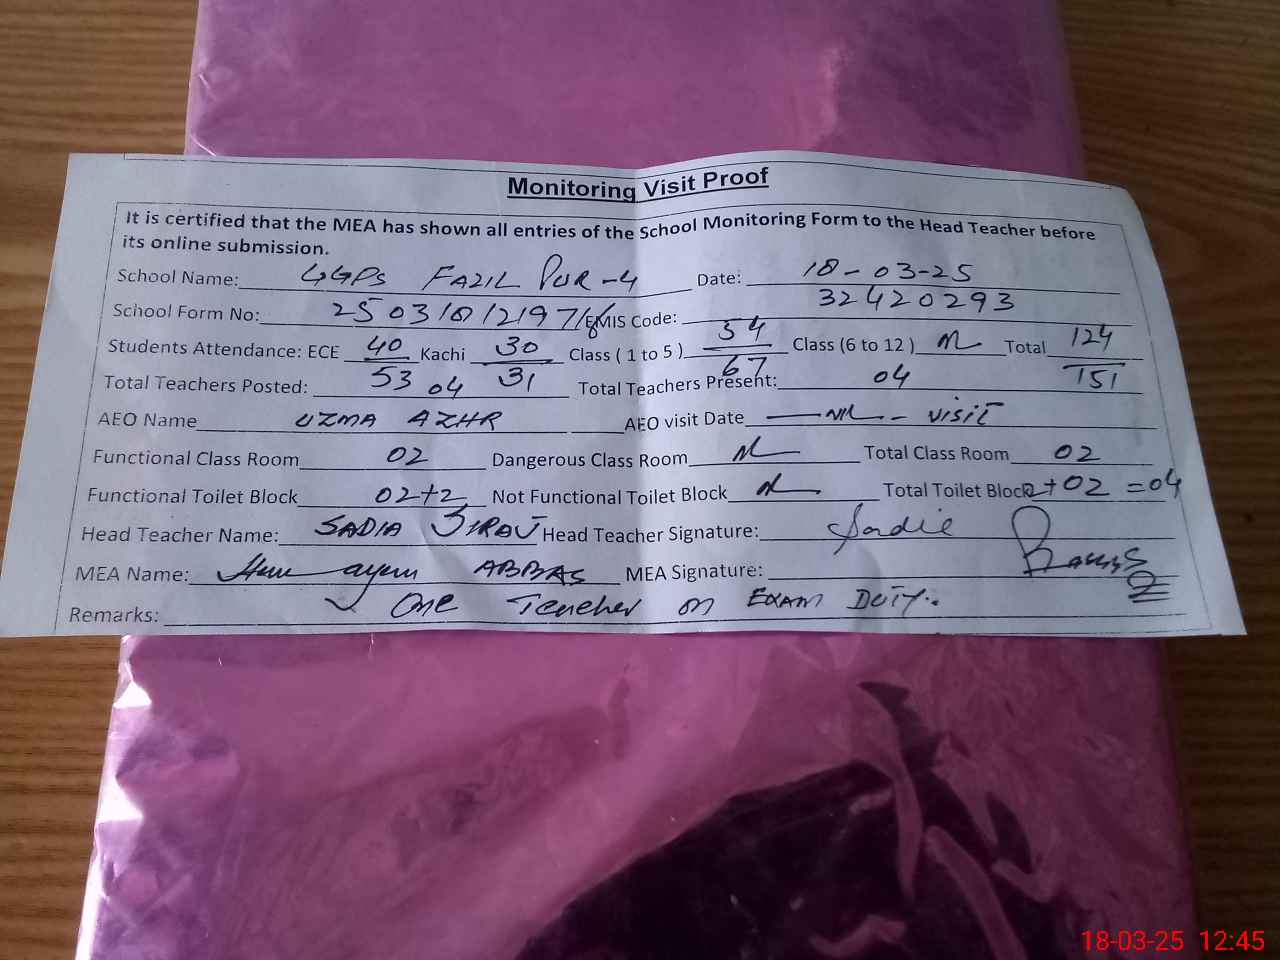 Monitoring Visit Proof
It is certified that the MEA has shown all entries of the School Monitoring Form to the Head Teacher before
its online submission.
School Name: GGPS FAZIL PUR-4 Date: 18-03-25
School Form No: EMIS Code: 32420293
Students Attendance: ECE 40/53 Kachi 30/31 Class ( 1 to 5 ) 54/67 Class (6 to 12 ) Total 124/151
Total Teachers Posted: 04 Total Teachers Present: 04
AEO Name UZMA AZHR AEO visit Date NIL - VISIT
Functional Class Room 02 Dangerous Class Room Total Class Room 02
Functional Toilet Block 02+2 Not Functional Toilet Block Total Toilet Block 2+02 =04
Head Teacher Name: SADIA SIRAJ Head Teacher Signature: Sadie
MEA Name: ABBAS MEA Signature:
Remarks: One Teacher on EXAM DUTY..
18-03-25 12:45